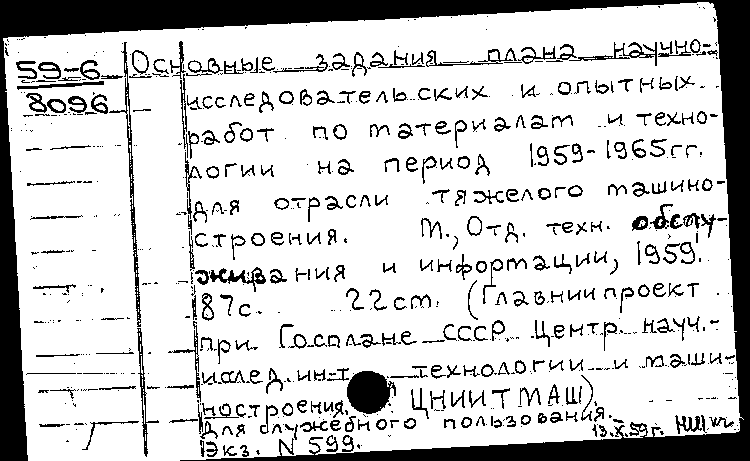 59-6 Основные задания плана научно-
8096 исследовательских и опытных
работ по материалам и техно-
логии на период 1959-1965гг.
для отрасли тяжелого машино-
строения. М., Отд. техн. обслу-
живания и информации, 1959.
87с. 22 cm. (Главниипроект
при Госплане СССР. Центр. науч.-
исслед. ин-т технологии и маши-
ностроения. ЦНИИТМАШ).
Для служебного пользования.
Экз. N 599. 13.X.59г.